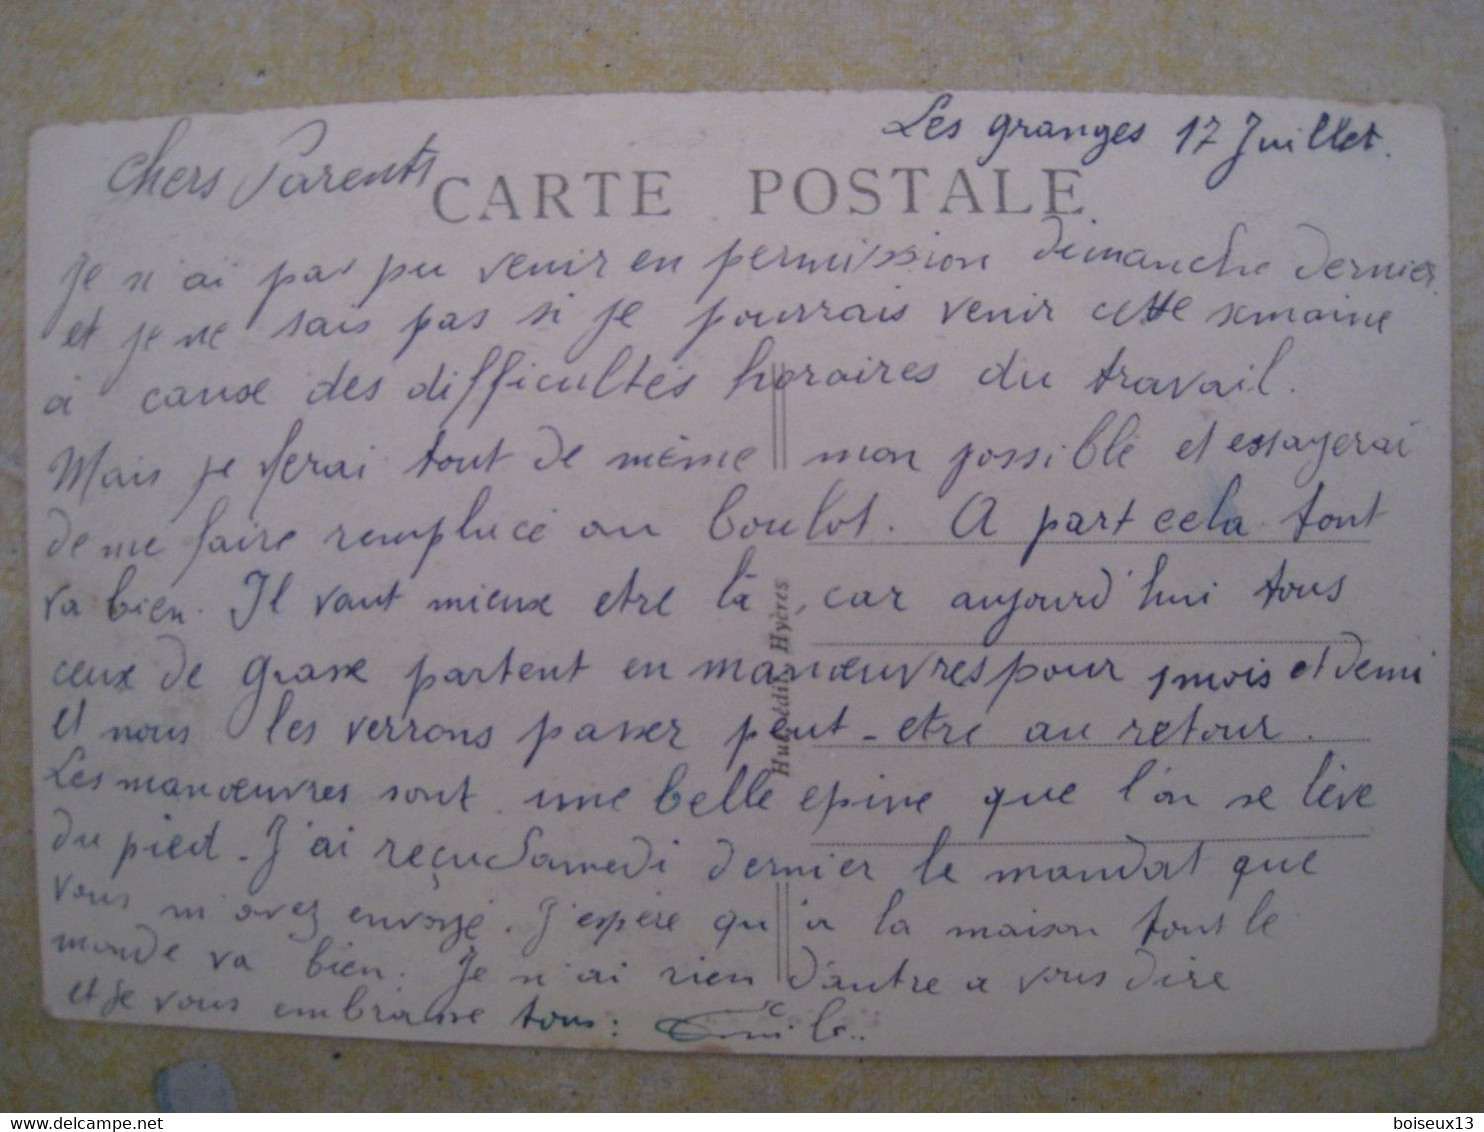 Les granges 17 Juillet.
Chers Parents
CARTE POSTALE
Je n'ai pas pu venir en permission dimanche dernier
et je ne sais pas si je pourrais venir cette semaine
à cause des difficultés horaires du travail.
Mais je ferai tout de même mon possible et essayerai
de me faire remplacé au boulot. A part cela tout
va bien. Il vaut mieux etre là, car aujourd'hui tous
ceux de grasse partent en manœuvres pour 1 mois et demi
et nous les verrons passer peut-etre au retour.
Les manœuvres sont une belle epine que l'on se lève
du pied. J'ai reçu Samedi dernier le mandat que
vous m'avez envoyé. J'espère qu'a la maison tout le
monde va bien. Je n'ai rien d'autre a vous dire
et je vous embrasse tous: Emile..
Hyères
boiseux13